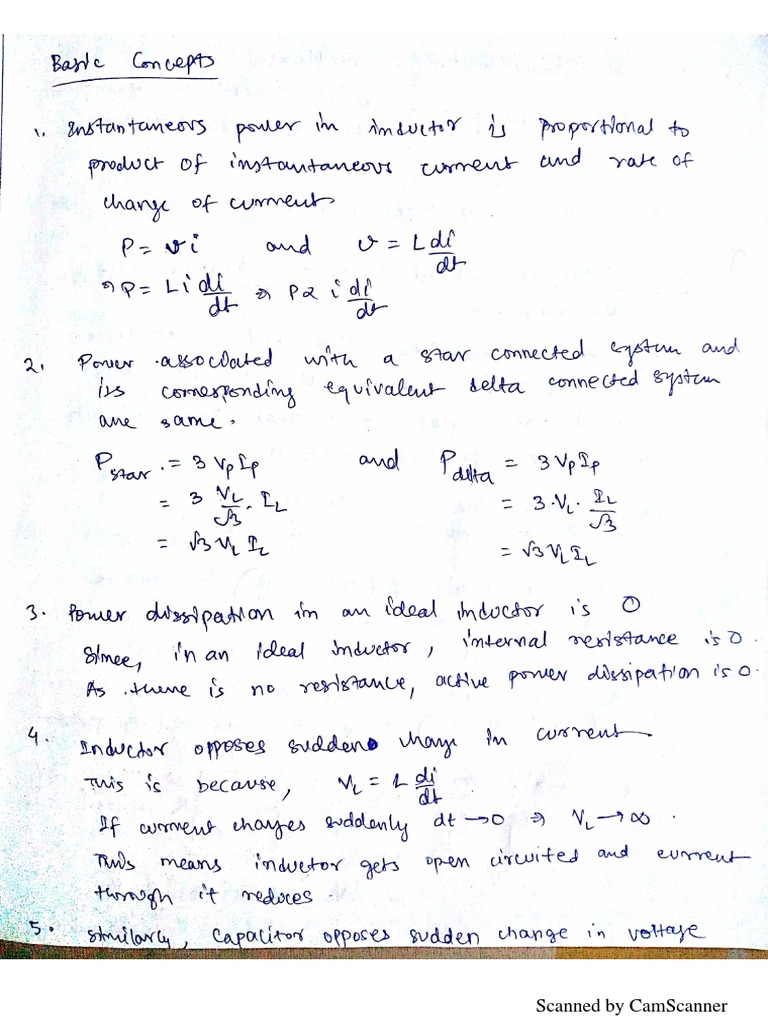 Basic Concepts
1. Instantaneous power in inductor is proportional to
product of instantaneous current and rate of
change of current
P = vi and v = L di/dt
⇒ P = Li di/dt ⇒ P ∝ i di/dt
2. Power associated with a star connected system and
its corresponding equivalent delta connected system
are same.
P star = 3 Vp Ip and P delta = 3 Vp Ip
= 3 VL/√3 . IL = 3 . VL . IL/√3
= √3 VL IL = √3 VL IL
3. Power dissipation in an ideal inductor is 0
Since, in an ideal inductor, internal resistance is 0
As there is no resistance, active power dissipation is 0.
4. Inductor opposes sudden change in current
This is because, VL = L di/dt
If current changes suddenly dt → 0 ⇒ VL → ∞.
This means inductor gets open circuited and current
through it reduces.
5. Similarly, capacitor opposes sudden change in voltage
Scanned by CamScanner